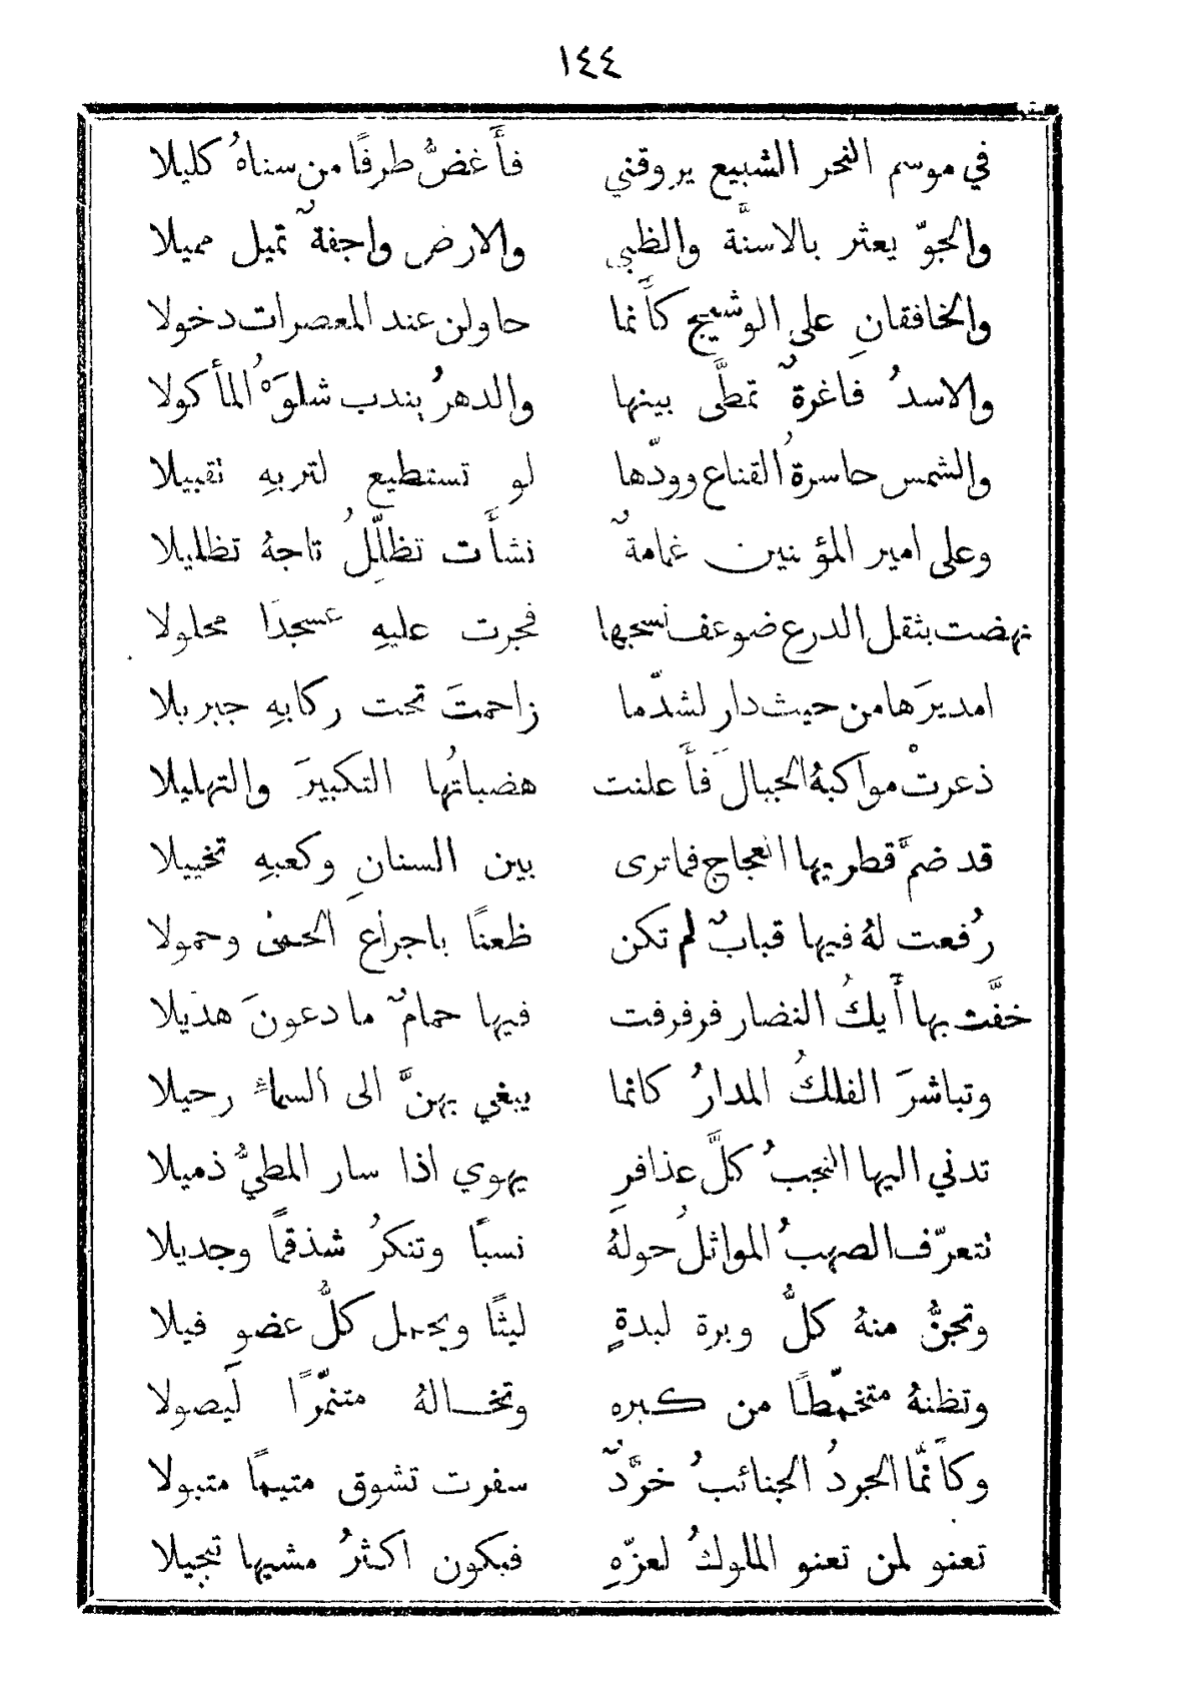 ١٤٤
في موسم النحر الشبيع يروقني فأَغضُّ طرفًا من سناهُ كليلا
والجوّ يعثر بالاسنَّة والظبى والارض واجفةٌ تميل مميلا
والخافقانِ على الوشيج كأَنما حاولن عند المعصرات دخولا
والاسدُ فاغرةٌ تمطَّى بينها والدهرُ يندب شلوَهُ المأكولا
والشمس حاسرةُ القناع وودّها لو تستطيع لتربهِ تقبيلا
وعلى امير المؤمنين غمامةٌ نشأَت تظلِّلُ تاجهُ تظليلا
نهضت بثقل الدرع ضوعف نسجها فجرت عليهِ عسجدًا محلولا
امديرَها من حيث دار لشدّما زاحمتَ تحت ركابهِ جبريلا
ذعرتْ مواكبهُ الجبالَ فأَعلنت هضباتُها التكبيرَ والتهليلا
قد ضمَّ قطريها العجاج فما ترى بين السنانِ وكعبهِ تخييلا
رُفعت لهُ فيها قبابٌ لم تكن ظعنًا باجراع الحمى وحمولا
خفَّت بها أَيكُ النضار فرفرفت فيها حمامٌ ما دعونَ هديلا
وتباشرَ الفلكُ المدارُ كانما يبغي بهنَّ الى السماءِ رحيلا
تدني اليها النجبُ كلَّ عذافرِ يهوي اذا سار المطيُّ ذميلا
تتعرّف الصهبُ المواثلُ حولهُ نسبًا وتنكرُ شذقمًا وجديلا
وتجنُّ منهُ كلُّ وبرة لبدةٍ ليثًا ويحمل كلُّ عضوٍ فيلا
وتظنهُ متخمّطًا من كبره وتخالهُ متنمّرًا لَيصولا
وكأَنمَّا الجردُ الجنائبُ خرَّدٌ سفرت تشوق متيمًا متبولا
تعنو لمن تعنو الملوكُ لعزّهِ فيكون اكثرُ مشيها تبجيلا